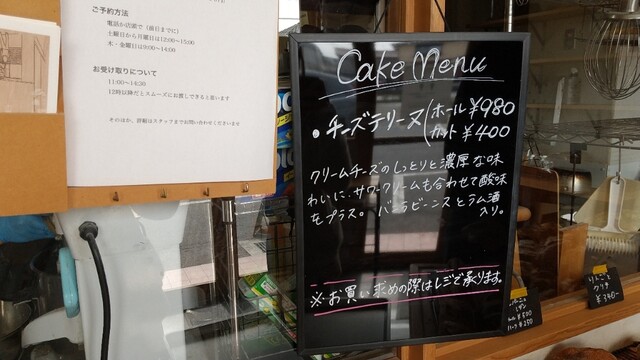 ご予約方法
電話か店頭で（前日までに）
土曜日から月曜日は12:00〜15:00
木・金曜日は9:00〜14:00
お受け取りについて
11:00〜16:30
12時以降だとスムーズにお渡しできると思います
そのほか、詳細はスタッフまでお問い合わせくださいませ
Cake Menu
・チーズテリーヌ(ホール ¥980
カット ¥400
クリームチーズのしっとりと濃厚な味
わいに、サワークリームも合わせて酸味
をプラス。バニラビーンズとラム酒
入り。
※お買い求めの際はレジで承ります。
りんごと
クリチ
¥340-